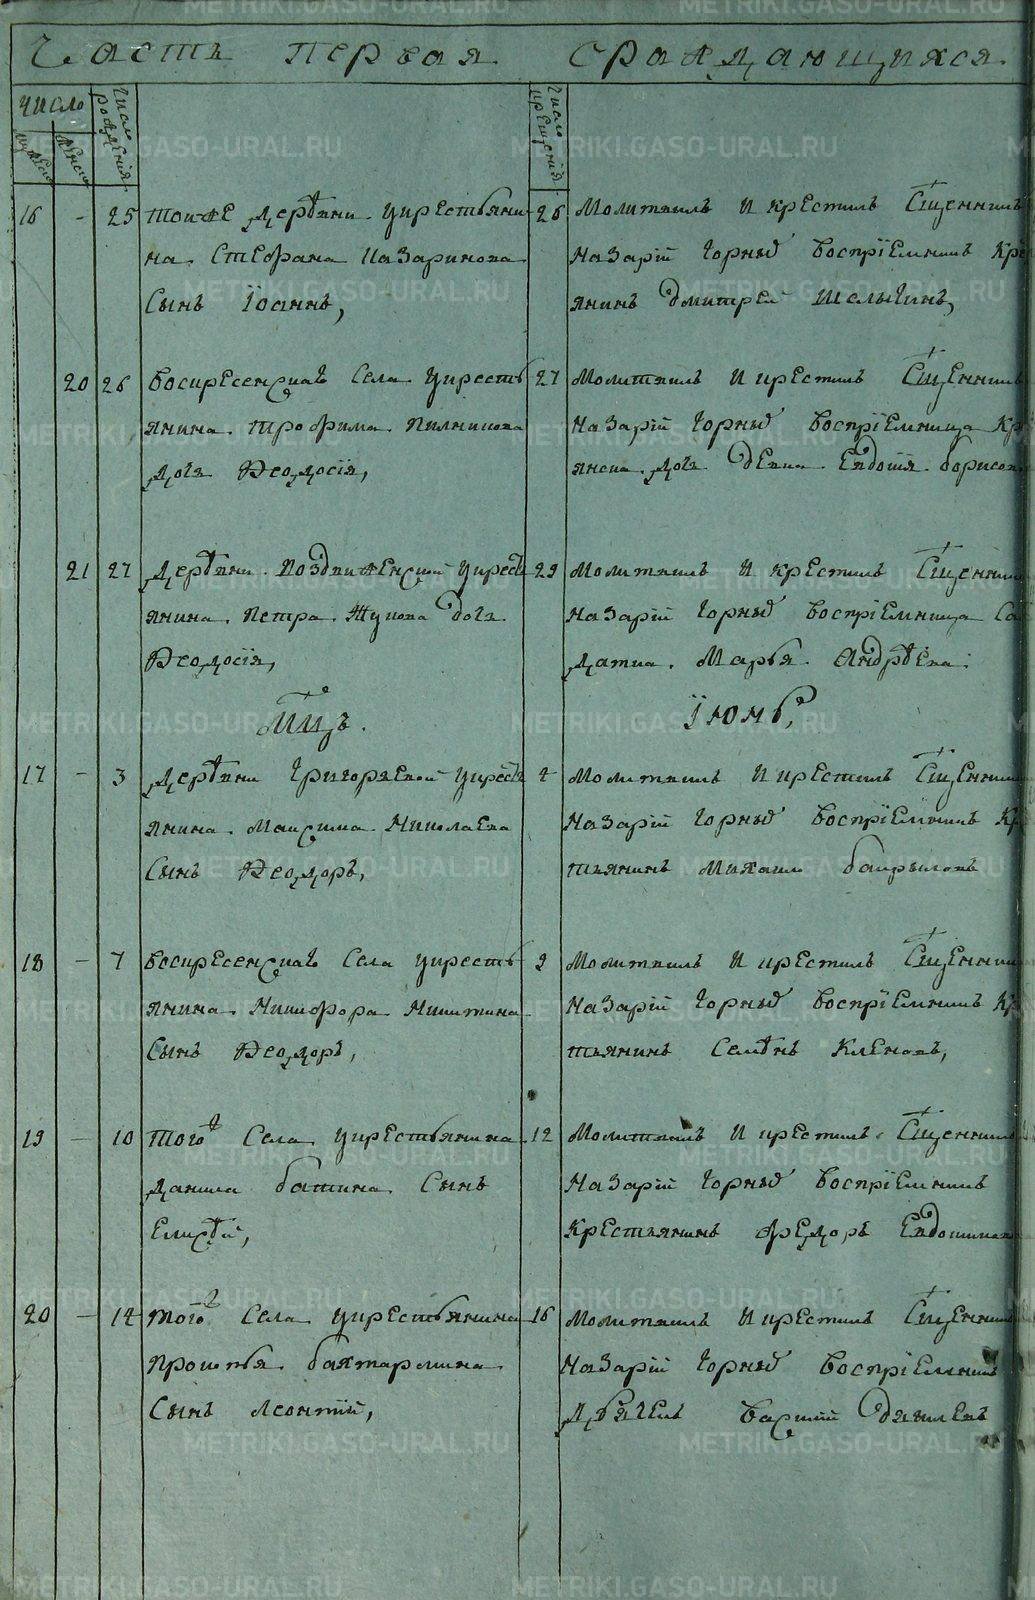 Часть первая ѡраждающихся.
Число
мужеск
женск
Число рожденія
Число крещенія
16 - 25 тои же деревни крестьяни-
на Стефана Назарикова
Сынъ Іоаннъ,
26 Молитвилъ и крестилъ Сщенникъ
Назарій Горных воспріемникъ Кре
янинъ Дмитреи Шалыгинъ,
20 26 Воскресенскаго Села крестьъ
янина Трофима Пилникова
дочь Ѳеодосія,
27 Молитвилъ и крестилъ Сщенникъ
Назарій Горных воспріемница Кр
янска дочь девка Евдокія Борисова
21 27 деревни Воздвиженской крестъ
янина Петра Жукова дочь
Ѳеодосія,
29 Молитвилъ и крестилъ Сщенник
Назарій Горных воспріемница Сол
датка Марья Андрѣева.
Мцъ.
Іюнь,
17 - 3 деревни Григорьевой крестъ
янина Максима Николаева
Сынъ Ѳеодоръ,
4 Молитвилъ и крестилъ Сщенник
Назарій Горных воспріемникъ Кр
тьянинъ Михаило
18 - 7 Воскресенскаго Села крестьъ
янина Никифора Никитина
Сынъ Ѳеодоръ,
9 Молитвилъ и крестилъ Сщенник
Назарій Горных воспріемникъ Кр
тьянинъ Семенъ Кленовъ,
19 - 10 Того Села крестьянина
Данила Батина Сынъ
Елисѣй,
12 Молитвилъ и крестилъ Сщенник
Назарій Горных воспріемникъ
Крестьянинъ Ѳедоръ Евдокимов
20 - 14 того Села крестьянина
Прокопья Бахтармина
Сынъ Леонтій,
16 Молитвилъ и крестилъ Сщенник
Назарій Горных воспріемникъ
Дьячекъ Василій
METRIKI.GASO-URAL.RU